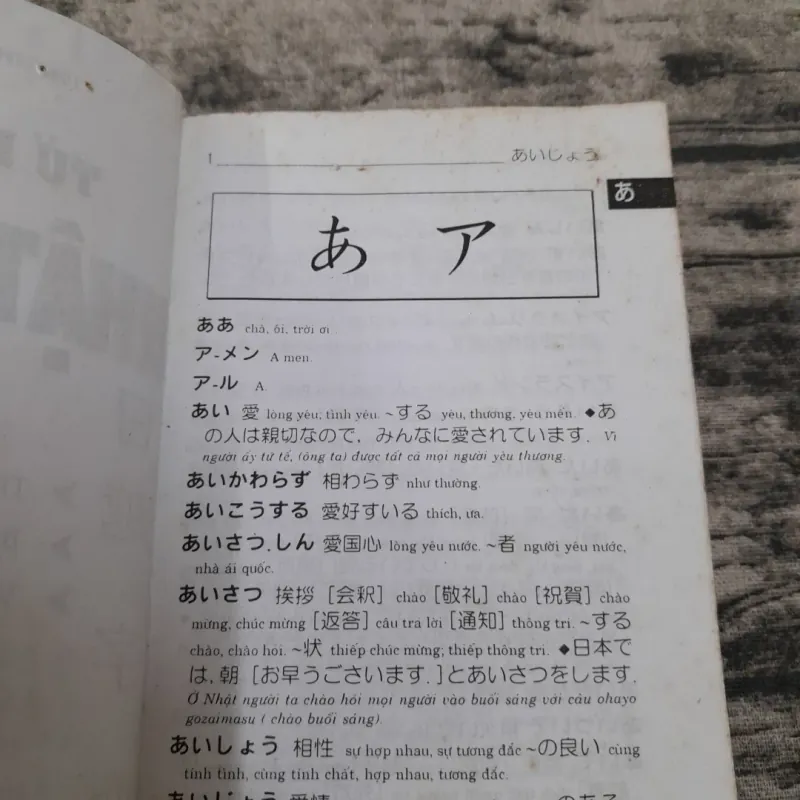 TỪ
1 あいじょう
あ
あ ア
ああ chà, ôi, trời ơi..
ア-メン A men.
ア-ル A.
あい 愛 lòng yêu, tình yêu. ~する yêu, thương, yêu mến. ◆あ
の人は親切なので, みんなに愛されています. Vì
người ấy tử tế, (ông ta) được tất cả mọi người yêu thương.
あいかわらず 相わらず như thường.
あいこうする 愛好すいる thích, ưa.
あいさつ.しん 愛国心 lòng yêu nước. ~者 người yêu nước,
nhà ái quốc.
あいさつ 挨拶 [会釈] chào [敬礼] chào [祝賀] chào
mừng, chúc mừng [返答] câu trả lời [通知] thông tri. ~する
chào, chào hỏi. ~状 thiếp chúc mừng; thiếp thông tri. ◆日本で
は, 朝 [お早うございます.]とあいさつをします.
Ở Nhật người ta chào hỏi mọi người vào buổi sáng với câu ohayo
gozaimasu ( chào buổi sáng).
あいしょう 相性 sự hợp nhau, sự tương đắc ~の良い cùng
tính tình, cùng tính chất, hợp nhau, tương đắc.
あいじょう 愛情 のある